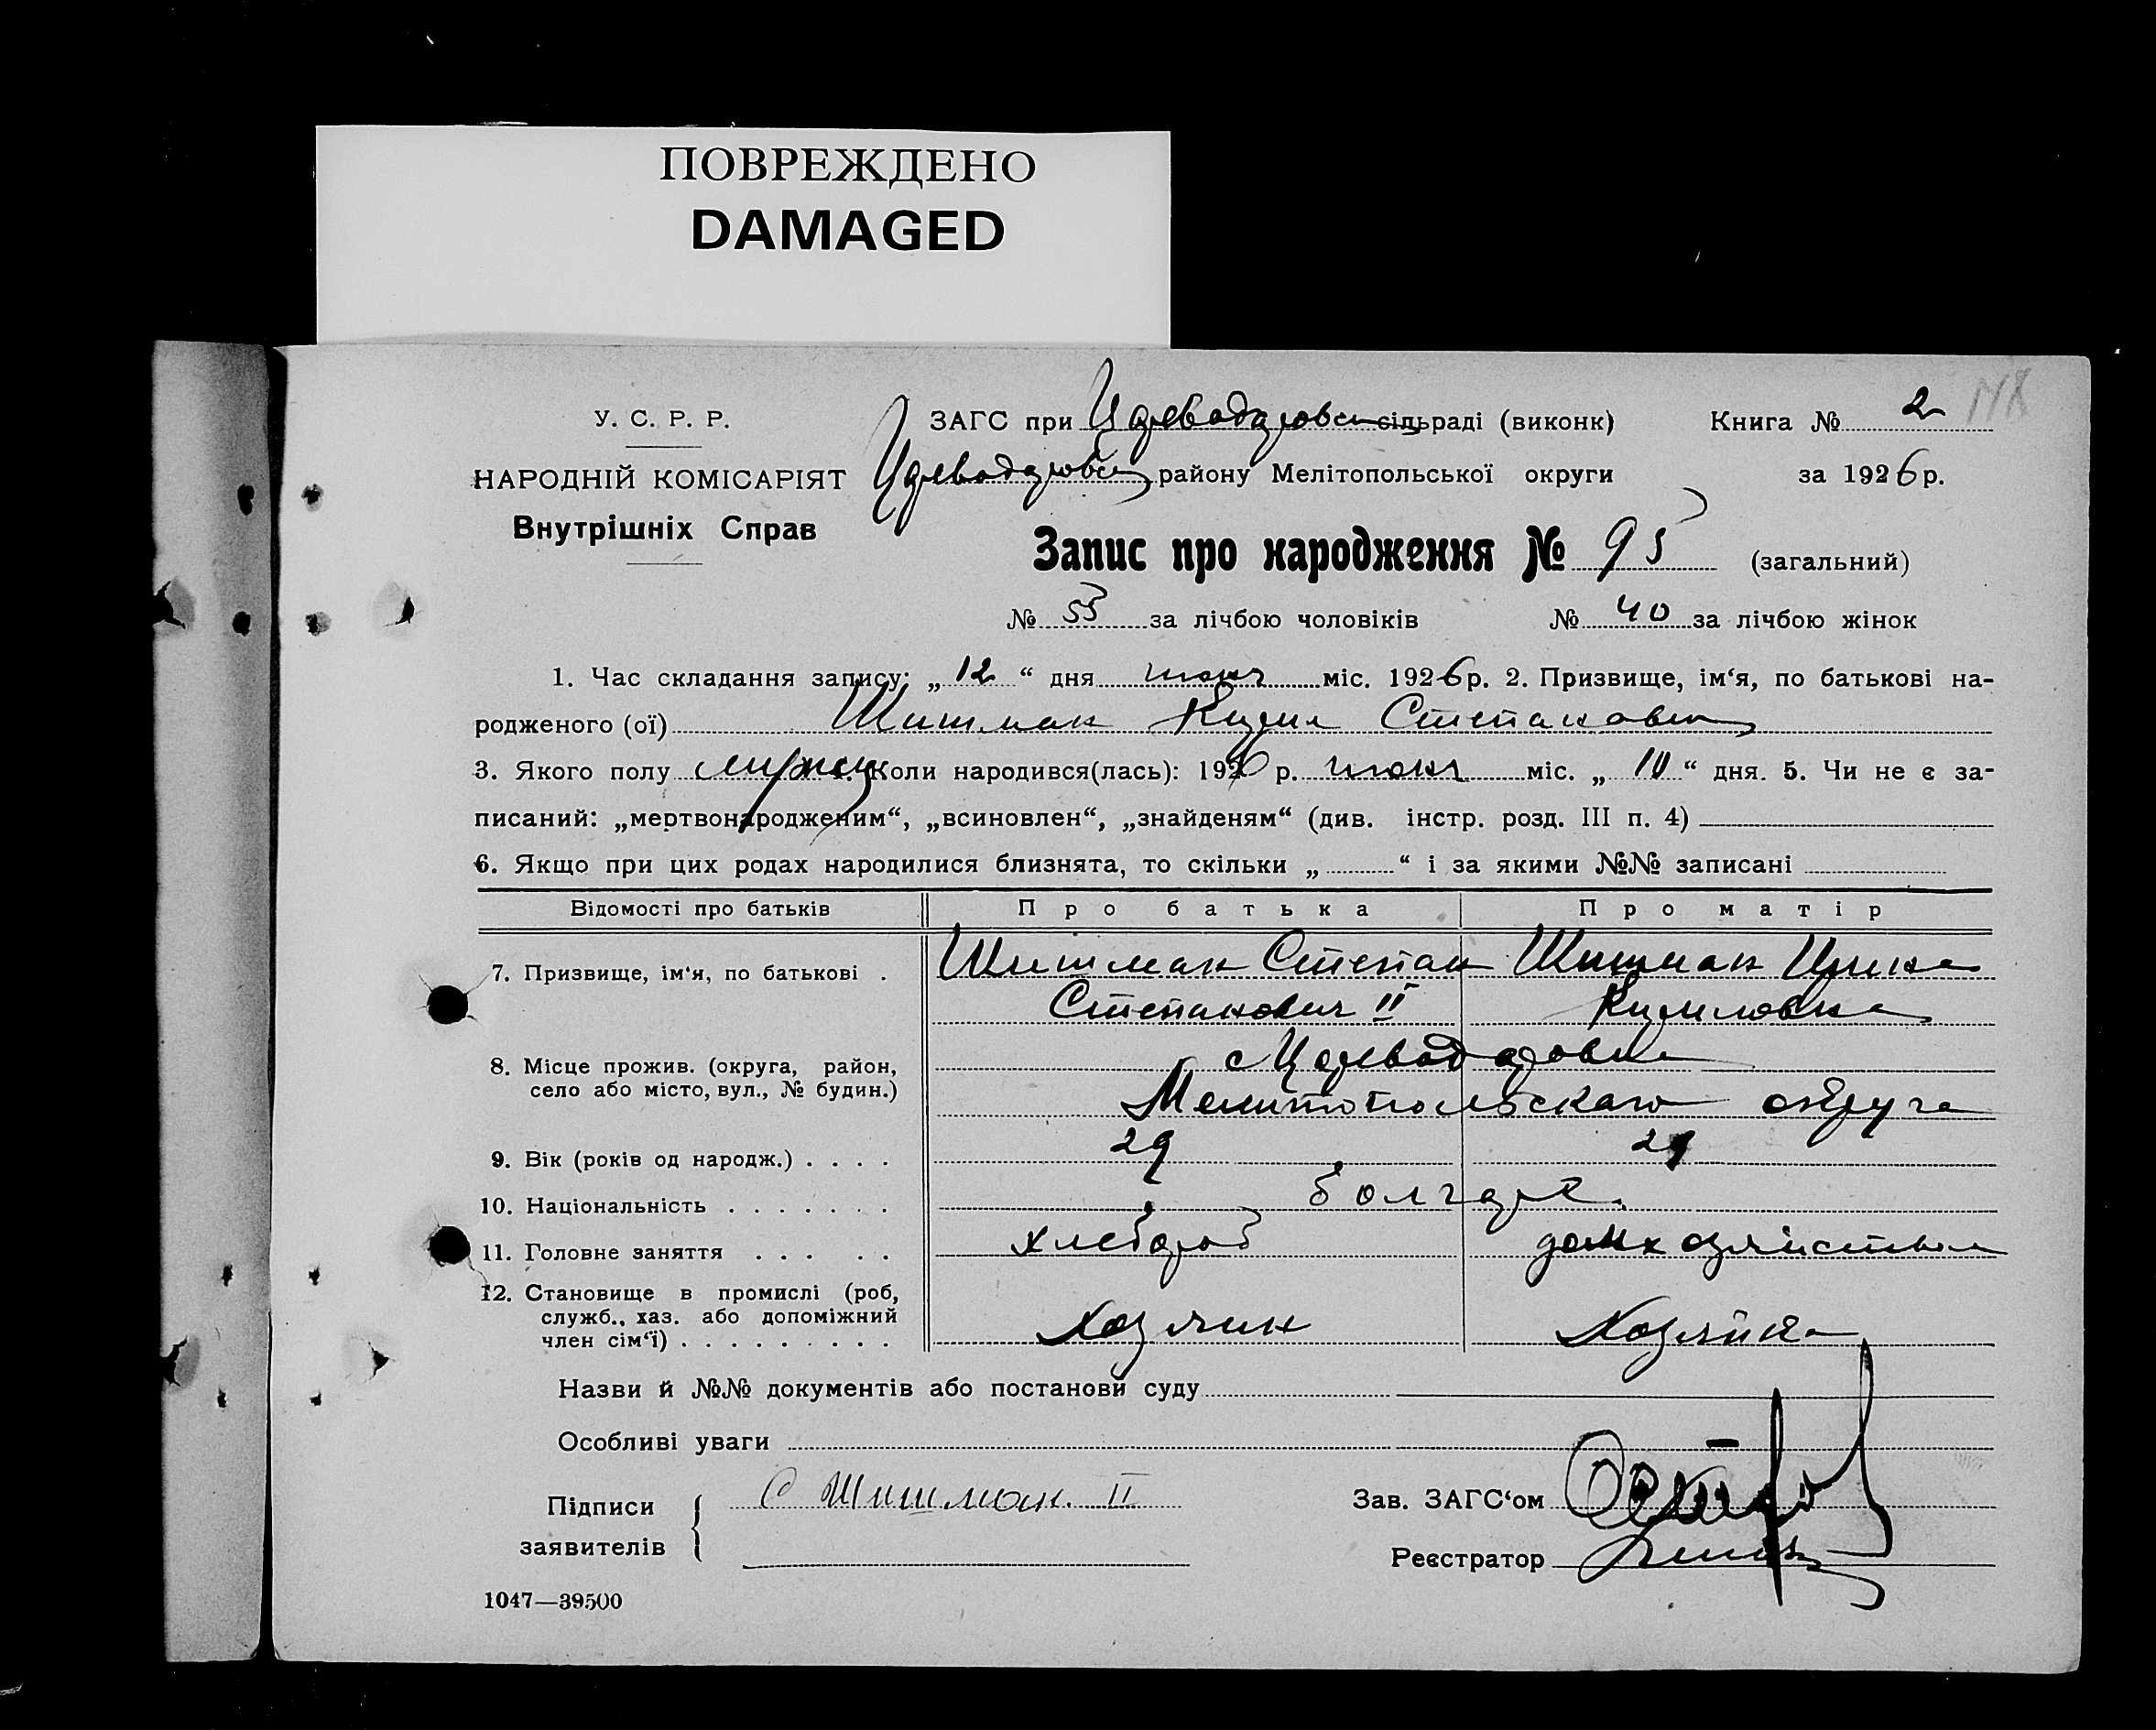 ПОВРЕЖДЕНО
DAMAGED
У. С. Р. Р.
НАРОДНІЙ КОМІСАРІЯТ
Внутрішніх Справ
ЗАГС при Цареводаровск сільраді (виконк)
Цареводаровск району Мелітопольської округи
Книга № 2
за 1926 р.
Запис про народження № 95 (загальний)
№ 53 за лічбою чоловіків № 40 за лічбою жінок
1. Час складання запису: „12“ дня июня міс. 1926 р. 2. Призвище, ім‘я, по батькові на-
родженого (ої) Шишман Кирил Степанович
3. Якого полу мужск 4. Коли народився(лась): 1926 р. июня міс. „10“ дня. 5. Чи не є за-
писаний: „мертвонародженим“, „всиновлен“, „знайденям“ (див. інстр. розд. III п. 4)
6. Якщо при цих родах народилися близнята, то скільки „ “ і за якими №№ записані
Відомості про батьків Про батька Про матір
7. Призвище, ім‘я, по батькові . Шишман Степан Шишман Ирина
Степанович II Кириловна
8. Місце прожив. (округа, район, с Цареводаровка
село або місто, вул., № будин.) Мелитопольскаго округа
9. Вік (років од народж.) . . . . 29 29
10. Національність . . . . . . . болгаре
11. Головне заняття . . . . . хлебороб домхозяйством
12. Становище в промислі (роб,
служб., хаз. або допоміжний
член сім‘ї) . . . . . . . . . Хозяин Хозяйка
Назви й №№ документів або постанови суду
Особливі уваги
Підписи
заявителів
С Шишман II
Зав. ЗАГС‘ом
Реєстратор
1047—39500